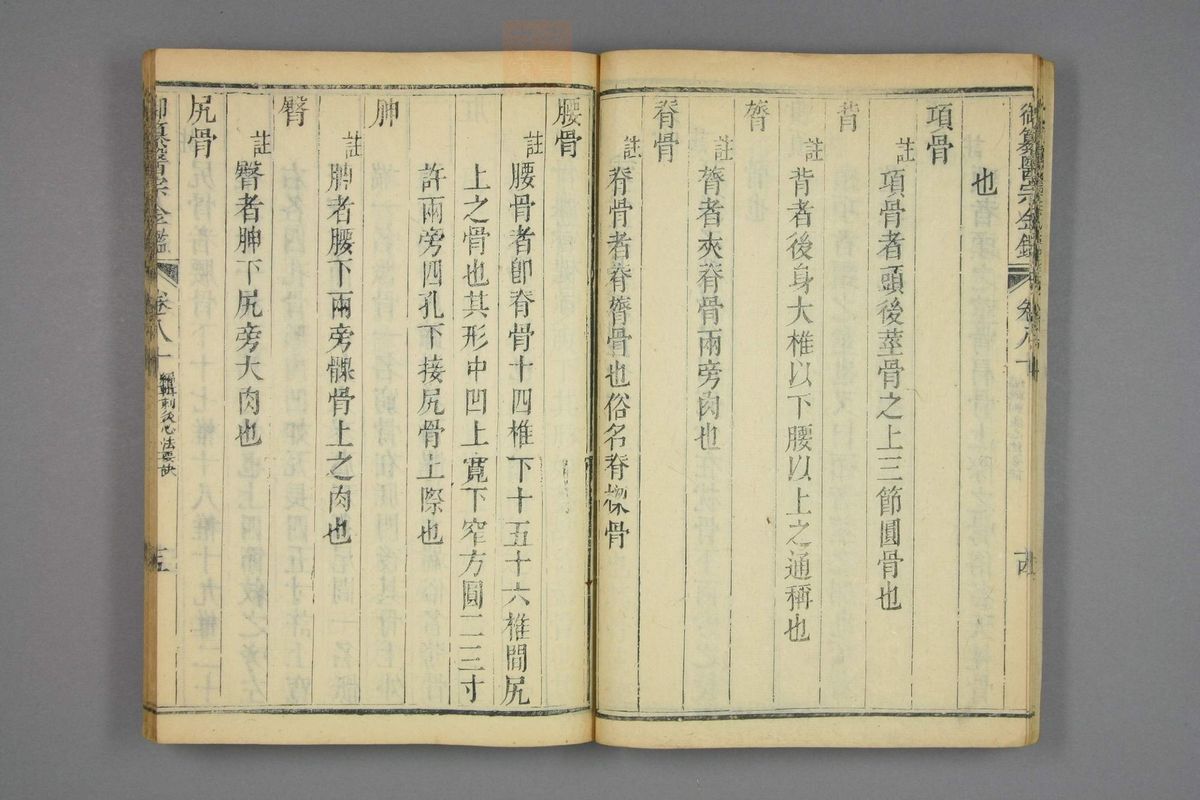 御纂醫宗金鑑 卷八十
也
項骨
註項骨者頭後莖骨之上三節圓骨也
背
註背者後身大椎以下腰以上之通稱也
膂
註膂者夾脊骨兩旁肉也
脊骨
註脊骨者脊膂骨也俗名脊樑骨
腰骨
註腰骨者卽脊骨十四椎下十五十六椎間尻
上之骨也其形中凹上寬下窄方圓二三寸
許兩旁四孔下接尻骨上際也
胂
註胂者腰下兩旁髁骨上之肉也
臀
註臀者胂下尻旁大肉也
尻骨
御纂醫宗金鑑 卷八十 編輯刺灸心法要訣 五